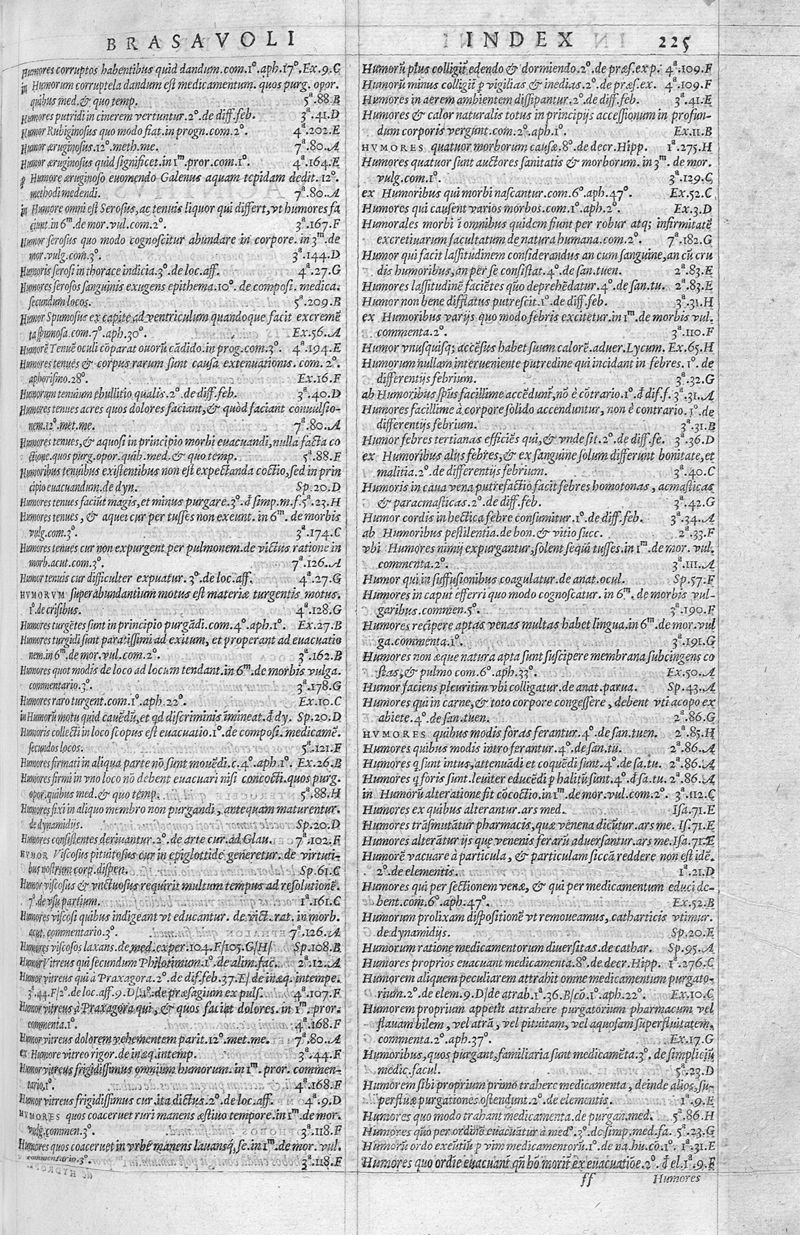 BRASAVOLI
Humores corruptos habentibus quid dandum.com.1º.aph.17º.Ex.9.C
in Humorum corruptela dandum est medicamentum. quos purg. opor.
quibus med.& quo temp. 5ª.88.B
Humores putridi in cinerem vertuntur.2º.de diff.feb. 3ª.41.D
Humor Rubiginosus quo modo fiat.in progn.com.2º. 4ª.202.E
Humor æruginosus.12º.meth.me. 7ª.80.A
Humor æruginosus quid significet.in 1m.pror.com.1º. 4ª.164.E
Humore æruginoso euomendo Galenus aquam tepidam dedit.12º.
methodi medendi. 7ª.80.A
in Humore omni est Serosus, ac tenuis liquor qui differt, vt humores fa
ciunt.in 6m.de mor.vul.com.2º. 3ª.167.F
Humor serosus quo modo cognoscitur abundare in corpore.in 3m.de
mor.vulg.com.3º. 3ª.144.D
Humoris serosi in thorace indicia.3º.de loc.aff. 4ª.27.G
Humores serosos sanguinis exugens epithema.10º.de composi. medica.
secundum locos. 5ª.209.B
Humor Spumosus ex capite ad ventriculum quandoque facit excremē
ta spumosa.com.7º.aph.30º. Ex.56.A
Humorē Tenuē oculi cōparat ouorū cādido.in prog.com.3º. 4ª.194.E
Humores tenues & corpus rarum sunt causa extenuationis. com. 2º.
aphorismo.28º. Ex.16.F
Humorum tenuium ebullitio qualis.2º.de diff.feb. 3ª.40.D
Humores tenues acres quos dolores faciant,& quòd faciant conuulsio-
nem.12º.met.me. 7ª.80.A
Humores tenues,& aquosi in principio morbi euacuandi,nulla facta co
ctione.quos purg.opor.quib.med.& quo temp. 5ª.88.F
Humoribus tenuibus existentibus non est expectanda coctio,sed in prin
cipio euacuandum.de dyn. Sp.20.D
Humores tenues faciūt magis,et minus purgare.3º.d̄ simp.m.f.5ª.23.H
Humores tenues, & aquei cur per tusses non exeunt. in 6m. de morbis
vulg.com.3º. 3ª.174.C
Humores tenues cur non expurgent per pulmonem.de victus ratione in
morb.acut.com.3º. 7ª.126.A
Humor tenuis cur difficulter expuatur.3º.de loc.aff. 4ª.27.G
HVMORVM superabundantium motus est materiæ turgentis motus.
1º.de crisibus. 4ª.128.G
Humores turgētes sunt in principio purgādi.com.4º.aph.1º. Ex.27.B
Humores turgidi sunt paratissimi ad exitum, et properant ad euacuatio
nem.in 6m.de mor.vul.com.2º. 3ª.162.B
Humores quot modis de loco ad locum tendant.in 6m.de morbis vulga.
commentario.3º. 3ª.178.G
Humores raro turgent.com.1º.aph.22º. Ex.10.C
in Humorū motu quid cauēdū,et qd discriminis imineat.d̄ dy. Sp.20.D
Humoris collecti in loco scopus est euacuatio.1º.de composi. medicamē.
secundos locos. 5ª.121.F
Humores firmati in aliqua parte nō sunt mouēdi.c.4º.aph.1º. Ex.26.B
Humores firmi in vno loco nō debent euacuari nisi concocti.quos purg.
opor.quibus med.& quo temp. 5ª.88.H
Humores fixi in aliquo membro non purgandi, antequam maturentur.
de dynamidijs. Sp.20.D
Humores consistentes deriuantur.2º.de arte cur.ad Glau. 7ª.102.F
HVMOR Viscosus pituitosus cur in epiglottide generetur.de virtuti-
bus nostrum corp.dispen. Sp.61.C
Humor viscosus & vnctuosus requirit multum tempus ad resolutionē.
7º.de vsu partium. 1ª.161.C
Humores viscosi quibus indigeant vt educantur. de vict. rat.in morb.
acut.commentario.3º. 7ª.126.A
Humores viscosos laxans.de med.exper.104.F/105.G/H/ Sp.108.B
Humor Vitreus qui secundum Philotimum.1º.de alim.fac. 2ª.12.A
Humor vitreus qui à Praxagora.2º.de dif.feb.37.E/de inæq.intempe.
3ª.44.F/2º.de loc.aff.9.D/4º.de præsagium ex puls. 4ª.107.F
Humor vitreus à Praxagora qui,& quos faciat dolores. in 1m.pror.
commenta.1º. 4ª.168.F
Humor vitreus dolorem vehementem parit.12º.met.me. 7ª.80.A
ex Humore vitreo rigor.de inæq.intemp. 3ª.44.F
Humor vitreus frigidissimus omnium humorum.in 1m.pror. commen-
tario,1º. 4ª.168.F
Humor vitreus frigidissimus cur ita dictus.2º.de loc.aff. 4ª.9.D
HVMORES quos coaceruet ruri manens æstiuo tempore.in 1m.de mor.
vulg.commen.3º. 3ª.118.F
Humores quos coaceruet in vrbe manens lauansq́,se.in 1m.de mor. vul.
commentario.3º. 3ª.118.F
INDEX 225
Humorū plus colligit edendo & dormiendo.2º.de præs.exp. 4ª.109.F
Humorū minus colligit p vigilias & inedias.2º.de præs.ex. 4ª.109.F
Humores in aerem ambientem dissipantur.2º.de diff.feb. 3ª.41.E
Humores & calor naturalis totus in principijs accessionum in profun-
dum corporis vergunt.com.2º.aph.1º. Ex.11.B
HVMORES quatuor morborum causæ.8º.de decr.Hipp. 1ª.275.H
Humores quatuor sunt auctores sanitatis & morborum. in 3m.de mor.
vulg.com.1º. 3ª.129.C
ex Humoribus qui morbi nascantur.com.6º.aph.47º. Ex.52.C
Humores qui causent varios morbos.com.1º.aph.2º. Ex.3.D
Humorales morbi ī omnibus quidem fiunt per robur atq; infirmitatē
excretiuarum facultatum de natura humana.com.2º. 7ª.182.G
Humor qui facit lassitudinem considerandus an cum sanguine,an cū cru
dis humoribus,an per se consistat.4º.de san.tuen. 2ª.83.E
Humores lassitudinē faciētes quo deprehēdatur.4º.de san.tu. 2ª.83.E
Humor non bene difflatus putrescit.1º.de diff.feb. 3ª.31.H
ex Humoribus varijs quo modo febris excitetur.in 1m.de morbis vul.
commenta.2º. 3ª.110.F
Humor vnusquisq; accēsus habet suum calorē.aduer.Lycum. Ex.65.H
Humorum nullam interueniente putredine qui incidant in febres.1º.de
differentijs febrium. 3ª.32.G
ab Humoribus sp̄us facillime accēdūnt,nō è cōtrario.1º.d̄ dif.f.3ª.31.A
Humores facillime à corpore solido accenduntur, non è contrario.1º.de
differentijs febrium. 3ª.31.B
Humor febres tertianas efficiēs qui,& vnde sit.2º.de diff.fe. 3ª.36.D
ex Humoribus alijs febres,& ex sanguine solum differunt bonitate,et
malitia.2º.de differentijs febrium. 3ª.40.C
Humoris in caua vena putrefactio facit febres homotonas, acmasticas
& paracmasticas.2º.de diff.feb. 3ª.42.G
Humor cordis in hectica febre consumitur.1º.de diff.feb. 3ª.34.A
ab Humoribus pestilentia.de bon.& vitio succ. 2ª.33.F
vbi Humores nimij expurgantur,solent sequi tusses.in 1m.de mor. vul.
commenta.2º. 3ª.111.A
Humor qui in suffusionibus coagulatur.de anat.ocul. Sp.57.F
Humores in caput efferri quo modo cognoscatur. in 6m. de morbis vul-
garibus.commen.5º. 3ª.190.F
Humores recipere aptas venas multas habet lingua.in 6m.de mor.vul
ga.commenta.1º. 3ª.191.G
Humores non æque natura apta sunt suscipere membrana subcingens co
stas,& pulmo com.6º.aph.33º. Ex.50.A
Humor faciens pleuritim vbi colligatur.de anat.parua. Sp.43.A
Humores qui in carne,& toto corpore congessere, debent vti acopo ex
abiete.4º.de san.tuen. 2ª.86.G
HVMORES quibus modis foras ferantur.4º.de san.tuen. 2ª.85.H
Humores quibus modis intro ferantur.4º.de san.tu. 2ª.86.A
Humores q sunt intus,attenuādi et coquēdi sunt.4º.de sa.tu. 2ª.86.A
Humores q foris sunt leuiter educēdi p halitū sunt.4º.d̄ sa.tu. 2ª.86.A
in Humorū alteratione fit cōcoctio.in 1m.de mor.vul.com.2º. 3ª.112.C
Humores ex quibus alterantur.ars med. Isa.71.E
Humores trāsmutātur pharmacis,quæ venena dicūtur.ars me. Is.71.E
Humores alterātur ijs que venenis ferarū aduersantur.ars me.Isa.71.E
Humorē vacuare à particula, & particulam siccā reddere non est idē.
2º.de elementis. 1ª.21.D
Humores qui per sectionem venæ, & qui per medicamentum educi de-
bent.com.6º.aph.47º. Ex.52.B
Humorum prolixam dispositionē vt remoueamus, catharticis vtimur.
de dynamidijs. Sp.20.E
Humorum ratione medicamentorum diuersitas.de cathar. Sp.95.A
Humores proprios euacuant medicamenta.8º.de decr.Hipp. 1ª.276.C
Humorem aliquem peculiarem attrahit omne medicamentum purgato-
rium.2º.de elem.9.D/de atrab.1ª.36.B/cō.1º.aph.22º. Ex.10.C
Humorem proprium appetit attrahere purgatorium pharmacum vel
flauam bilem, vel atrā, vel pituitam, vel aquosam superfluitatem,
commenta.2º.aph.37º. Ex.17.G
Humoribus,quos purgant,familiaria sunt medicamēta.3º.de simpliciū
medic.facul. 5ª.23.D
Humorem sibi proprium primo trahere medicamenta, deinde alios,su-
perfluæ purgationes ostendunt.2º.de elementis. 1ª.9.E
Humores quo modo trahant medicamenta.de purgan.med. 5ª.86.H
Humores quō per ordinē euacuātur à medº.3º.de simp.med.fa. 5ª.23.G
Humorū ordo exeūtiū p vim medicamentorū.1º.de na.hu.cō.1º. 1ª.31.E
Humores quo ordie euacuant qñ hō morit ex euacuatiōe.2º.d̄ el.1ª.9.F
ff Humores